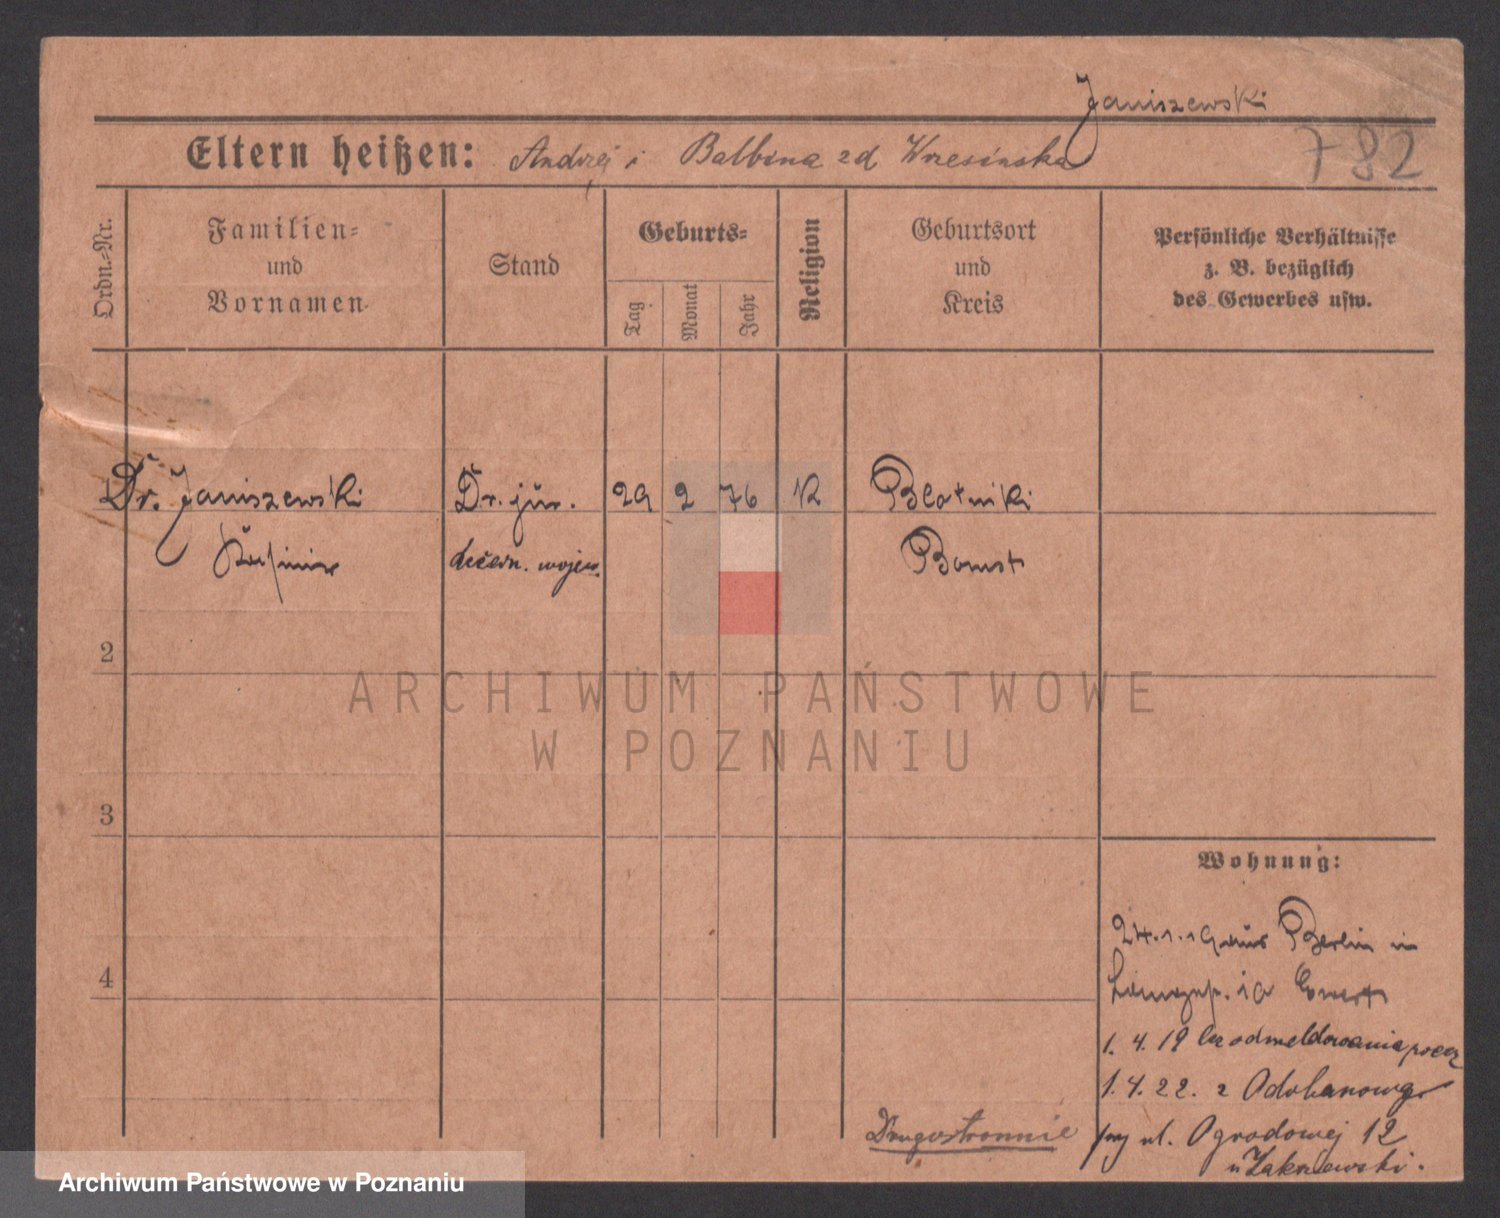 Janiszewski
Eltern heißen: Andrzej i Balbina zd Wrzesińska
782
Ordn.-Nr.
Familien-
und
Vornamen
Stand
Geburts-
Tag
Monat
Jahr
Religion
Geburtsort
und
Kreis
Persönliche Verhältnisse
z. B. bezüglich
des Gewerbes usw.
Dr. Janiszewski Dr. jur. 29 2 76 K Blotniki
wojew. Bomst
2
ARCHIWUM PAŃSTWOWE
W POZNANIU
3
Wohnung:
24.1.19 aus Berlin in
4
1.4.19
1.4.22. z Odolanowa
Drugostronnie
przy ul. Ogrodowej 12
u Zakrzewski.
Archiwum Państwowe w Poznaniu